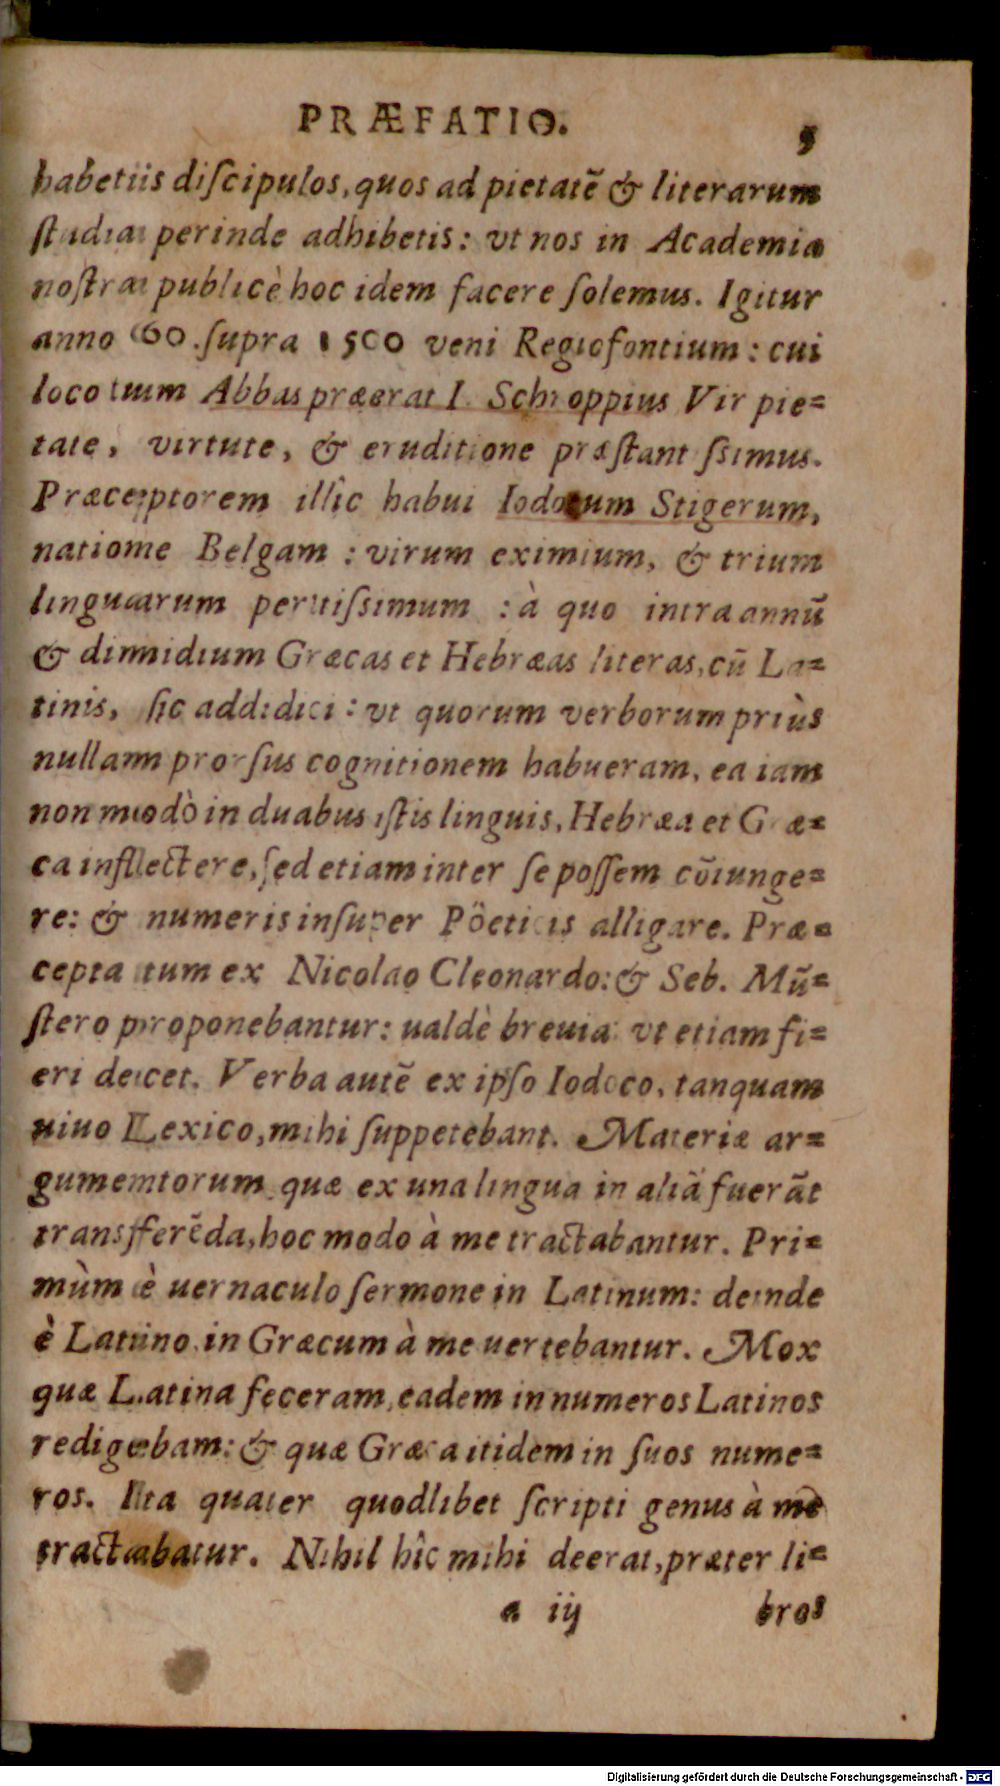 PRÆFATIO. 5
habetis diſcipulos, quos ad pietatẽ & literarum
ſtudia perinde adhibetis: vt nos in Academia
noſtra publicè hoc idem facere ſolemus. Igitur
anno 60. ſupra 1500 veni Regiofontium: cui
loco tum Abbas præerat I. Schroppius Vir pie=
tate, virtute, & eruditione præſtantiſsimus.
Præceptorem illîc habui Iodocum Stigerum,
natione Belgam: virum eximium, & trium
linguarum peritiſsimum: à quo intra annũ
& dimidium Græcas et Hebræas literas, cũ La=
tinis, ſic addidici: vt quorum verborum priùs
nullam prorſus cognitionem habueram, ea iam
non modò in duabus iſtis linguis, Hebræa et Græ=
ca inflectere, ſed etiam inter ſe poſſem cõiunge=
re: & numeris inſuper Pöeticis alligare. Præ=
cepta tum ex Nicolao Cleonardo: & Seb. Mũ=
ſtero proponebantur: ualdè breuia: vt etiam fi=
eri decet. Verba autẽ ex ipſo Iodoco, tanquam
uiuo Lexico, mihi ſuppetebant. Materiæ ar=
gumentorum, quæ ex una lingua in aliã fuerãt
transferẽda, hoc modo à me tractabantur. Pri=
mùm è uernaculo ſermone in Latinum: deinde
è Latino in Græcum à me uertebantur. Mox
quæ Latina feceram, eadem in numeros Latinos
redigebam: & quæ Græca itidem in ſuos nume=
ros. Ita quater quodlibet ſcripti genus à me
tractabatur. Nihil hîc mihi deerat, præter li=
a iij bros
Digitalisierung gefördert durch die Deutsche Forschungsgemeinschaft - DFG